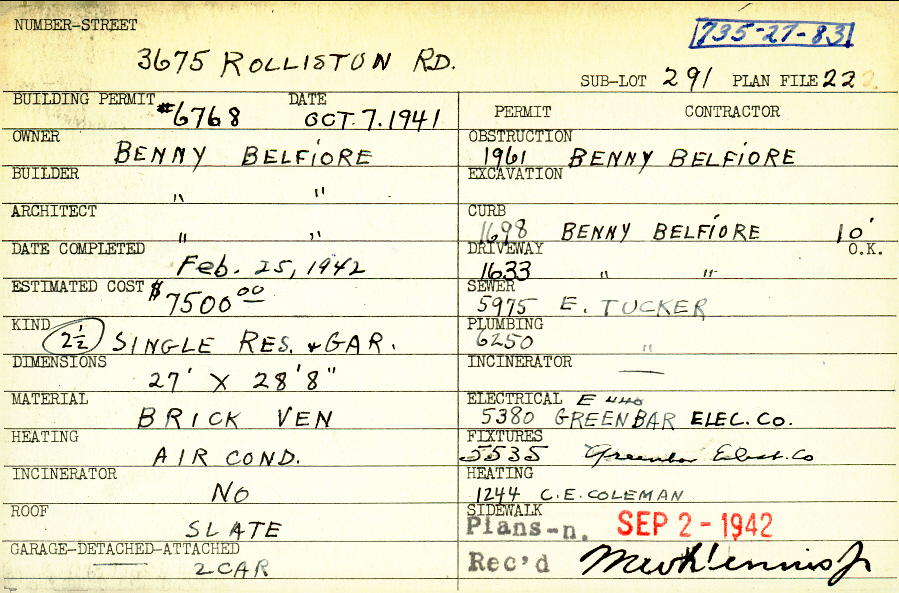 NUMBER-STREET
735-27-83
3675 ROLLISTON RD.
SUB-LOT 291 PLAN FILE 22
BUILDING PERMIT #6768 DATE OCT. 7. 1941
PERMIT CONTRACTOR
OWNER
BENNY BELFIORE
OBSTRUCTION
1961 BENNY BELFIORE
BUILDER
" "
EXCAVATION
ARCHITECT
" "
CURB
1698 BENNY BELFIORE 10'
O.K.
DATE COMPLETED
Feb. 25, 1942
DRIVEWAY
1633 " "
ESTIMATED COST $7500 00
SEWER
5975 E. TUCKER
KIND
2½ SINGLE RES. & GAR.
PLUMBING
6250 "
DIMENSIONS
27' X 28'8"
INCINERATOR
—
MATERIAL
BRICK VEN
ELECTRICAL E 440
5380 GREENBAR ELEC. CO.
HEATING
AIR COND.
FIXTURES
5535 Greenbar Elect. Co
INCINERATOR
NO
HEATING
1244 C.E. COLEMAN
ROOF
SLATE
SIDEWALK
Plans-n. SEP 2-1942
GARAGE-DETACHED-ATTACHED
2 CAR
Rec'd